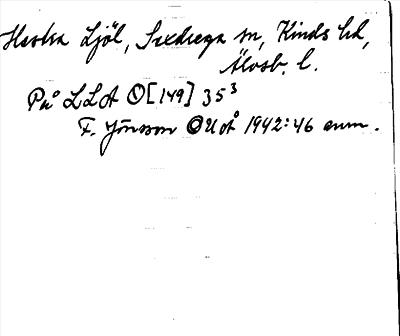 Hestra Ljöl, Sexdrega sn, Kinds hd,
Älvsb. l.
På LLA O[149] 35³
F. Jönsson OUOÅ 1942:46 anm.